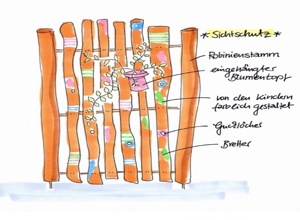 * Sichtschutz *
Robinienstamm
eingehängter
Blumentopf
von den Kindern
farblich gestaltet
Gucklöcher
Bretter